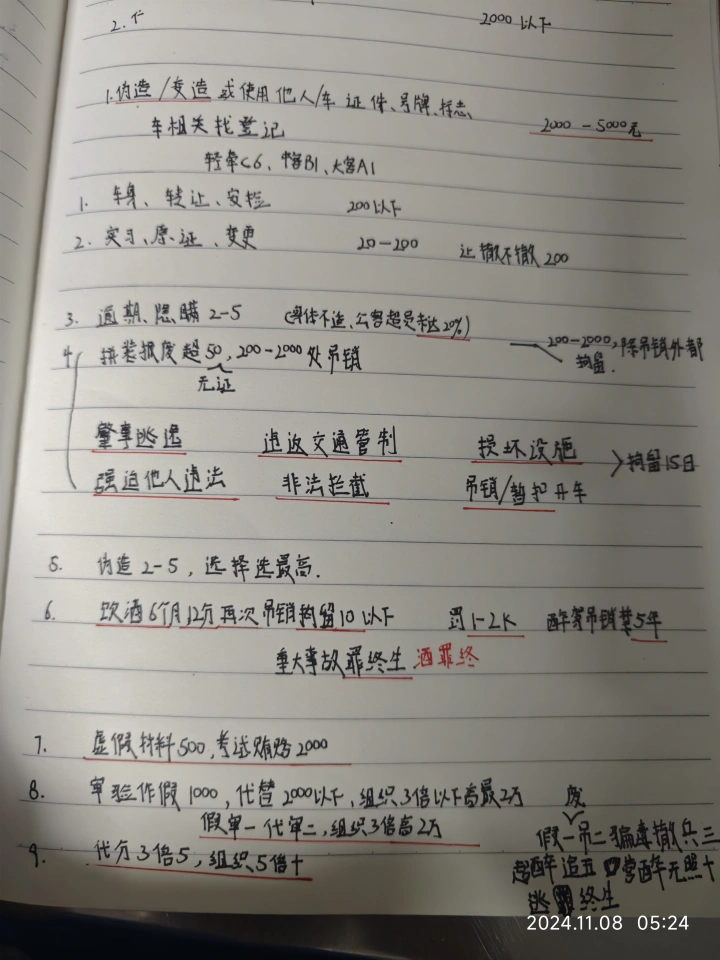 2.
2000以下
1.伪造/变造或使用他人/车证件、号牌、标志、
车相关找登记 2000-5000元
轻牵C6、中客B1、大客A1
1. 车身、转让、安检 200以下
2. 实习、原证、变更 20-200 让撤不撤200
3. 逾期、隐瞒2-5 (身体不适、公客超员未达20%)
4 拼装报废超50,200-2000处吊销 200-2000,除吊销外都
无证 拘留.
肇事逃逸 违返交通管制 损坏设施
强迫他人违法 非法拦截 吊销/暂扣开车 >拘留15日
5. 伪造2-5,选择选最高.
6. 饮酒6个月12分再次吊销拘留10以下 罚1-2K 醉驾吊销禁5年
重大事故罪终生 酒罪终
7. 虚假材料500,考试贿赂2000
8. 审验作假1000,代替2000以下,组织3倍以下高最2万
假审一代审二,组织3倍高2万
9. 代分3倍5,组织5倍十
废
假一吊二骗毒撤兵三
超醉追五 营醉无照十
逃罪终生
2024.11.08 05:24